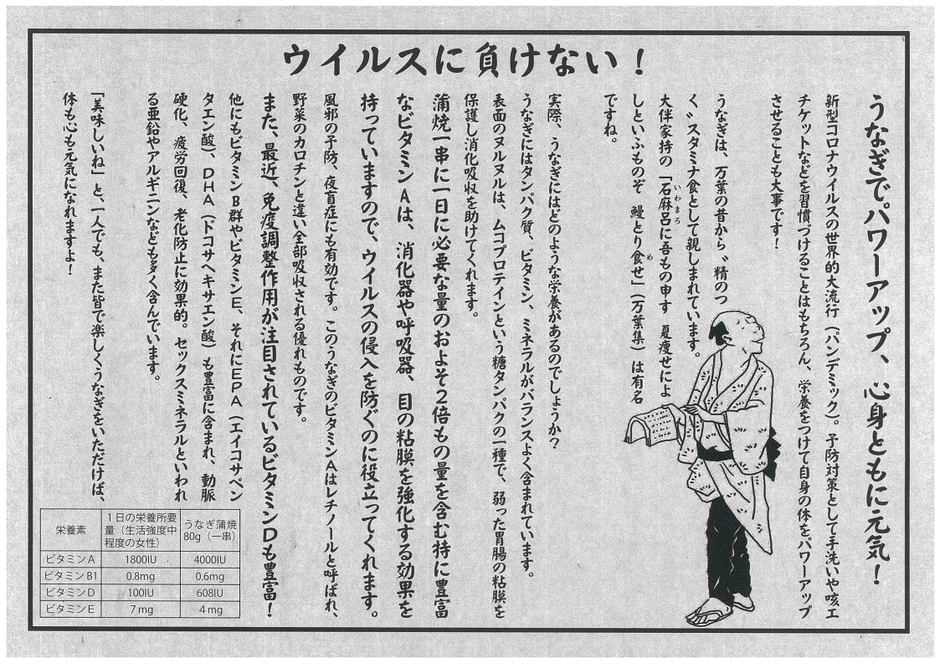 ウイルスに負けない！
うなぎでパワーアップ、心身ともに元気！
新型コロナウイルスの世界的大流行（パンデミック）。予防対策として手洗いや咳エ
チケットなどを習慣づけることはもちろん、栄養をつけて自身の体をパワーアップ
させることも大事です！
うなぎは、万葉の昔から〝精のつ
く〟スタミナ食として親しまれています。
大伴家持の「石麻呂に吾もの申す 夏痩せによ
いわまろ
しといふものぞ 鰻とり食せ」（万葉集）は有名
め
ですね。
実際、うなぎにはどのような栄養があるのでしょうか？
うなぎにはタンパク質、ビタミン、ミネラルがバランスよく含まれています。
表面のヌルヌルは、ムコプロテインという糖タンパクの一種で、弱った胃腸の粘膜を
保護し消化吸収を助けてくれます。
蒲焼一串に一日に必要な量のおよそ２倍もの量を含む特に豊富
なビタミンAは、消化器や呼吸器、目の粘膜を強化する効果を
持っていますので、ウイルスの侵入を防ぐのに役立ってくれます。
風邪の予防、夜盲症にも有効です。このうなぎのビタミンAはレチノールと呼ばれ、
野菜のカロチンと違い全部吸収される優れものです。
また、最近、免疫調整作用が注目されているビタミンDも豊富！
他にもビタミンB群やビタミンE、それにEPA（エイコサペン
タエン酸）、DHA（ドコサヘキサエン酸）も豊富に含まれ、動脈
硬化、疲労回復、老化防止に効果的。セックスミネラルといわれ
る亜鉛やアルギニンなども多く含んでいます。
「美味しいね」と、一人でも、また皆で楽しくうなぎをいただけば、
体も心も元気になれますよ！
栄養素 １日の栄養所要量（生活強度中程度の女性） うなぎ蒲焼80g（一串）
ビタミンA 1800IU 4000IU
ビタミンB1 0.8mg 0.6mg
ビタミンD 100IU 608IU
ビタミンE 7mg 4mg